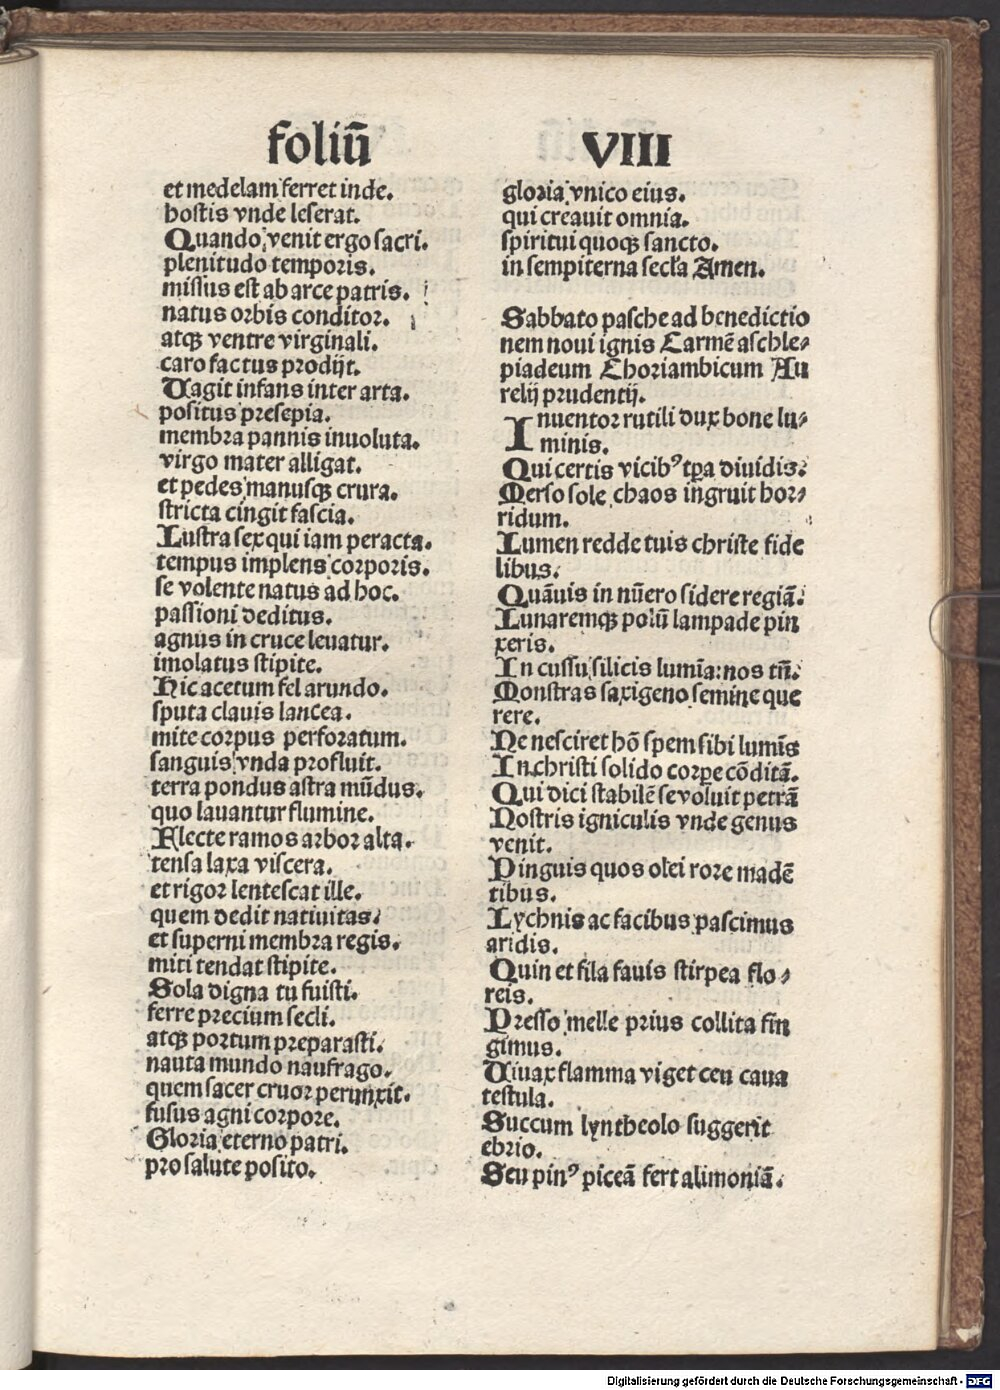 foliū VIII
et medelam ferret inde.
hostis vnde leserat.
Quando venit ergo sacri.
plenitudo temporis.
missus est ab arce patris.
natus orbis conditor.
atqꝫ ventre virginali.
caro factus prodijt.
Uagit infans inter arta.
positus presepia.
membra pannis inuoluta.
virgo mater alligat.
et pedes manusqꝫ crura.
stricta cingit fascia.
Lustra sex qui iam peracta.
tempus implens corporis.
se volente natus ad hoc.
passioni deditus.
agnus in cruce leuatur.
imolatus stipite.
Hic acetum fel arundo.
sputa clauis lancea.
mite corpus perforatum.
sanguis vnda profluit.
terra pondus astra mūdus.
quo lauantur flumine.
Flecte ramos arbor alta.
tensa laxa viscera.
et rigor lentescat ille.
quem dedit natiuitas.
et superni membra regis.
miti tendat stipite.
Sola digna tu fuisti.
ferre precium secli.
atqꝫ portum preparasti.
nauta mundo naufrago.
quem sacer cruor perunxit.
fusus agni corpore.
Gloria eterno patri.
pro salute posito.
gloria vnico eius.
qui creauit omnia.
spiritui quoqꝫ sancto.
in sempiterna secl'a Amen.
Sabbato pasche ad benedictio
nem noui ignis Carmē aschle⸗
piadeum Choriambicum Au
relij prudentij.
Inuentor rutili dux bone lu⸗
minis.
Qui certis vicibꝰ tꝑa diuidis.
Merso sole chaos ingruit hor⸗
ridum.
Lumen redde tuis christe fide
libus.
Quāuis in nūero sidere regiā.
Lunaremqꝫ polū lampade pin
xeris.
In cussu silicis lumīa: nos tn̄.
Monstras saxigeno semine que
rere.
Ne nesciret hō spem sibi lumīs
In christi solido corꝑe cōditā.
Qui dici stabilē se voluit petrā
Nostris igniculis vnde genus
venit.
Pinguis quos olei rore madē
tibus.
Lychnis ac facibus pascimus
aridis.
Quin et fila fauis stirpea flo⸗
reis.
Presso melle prius collita fin
gimus.
Uiuax flamma viget ceu caua
testula.
Succum lyntheolo suggerit
ebrio.
Seu pinꝰ piceā fert alimoniā.
Digitalisierung gefördert durch die Deutsche Forschungsgemeinschaft - DFG